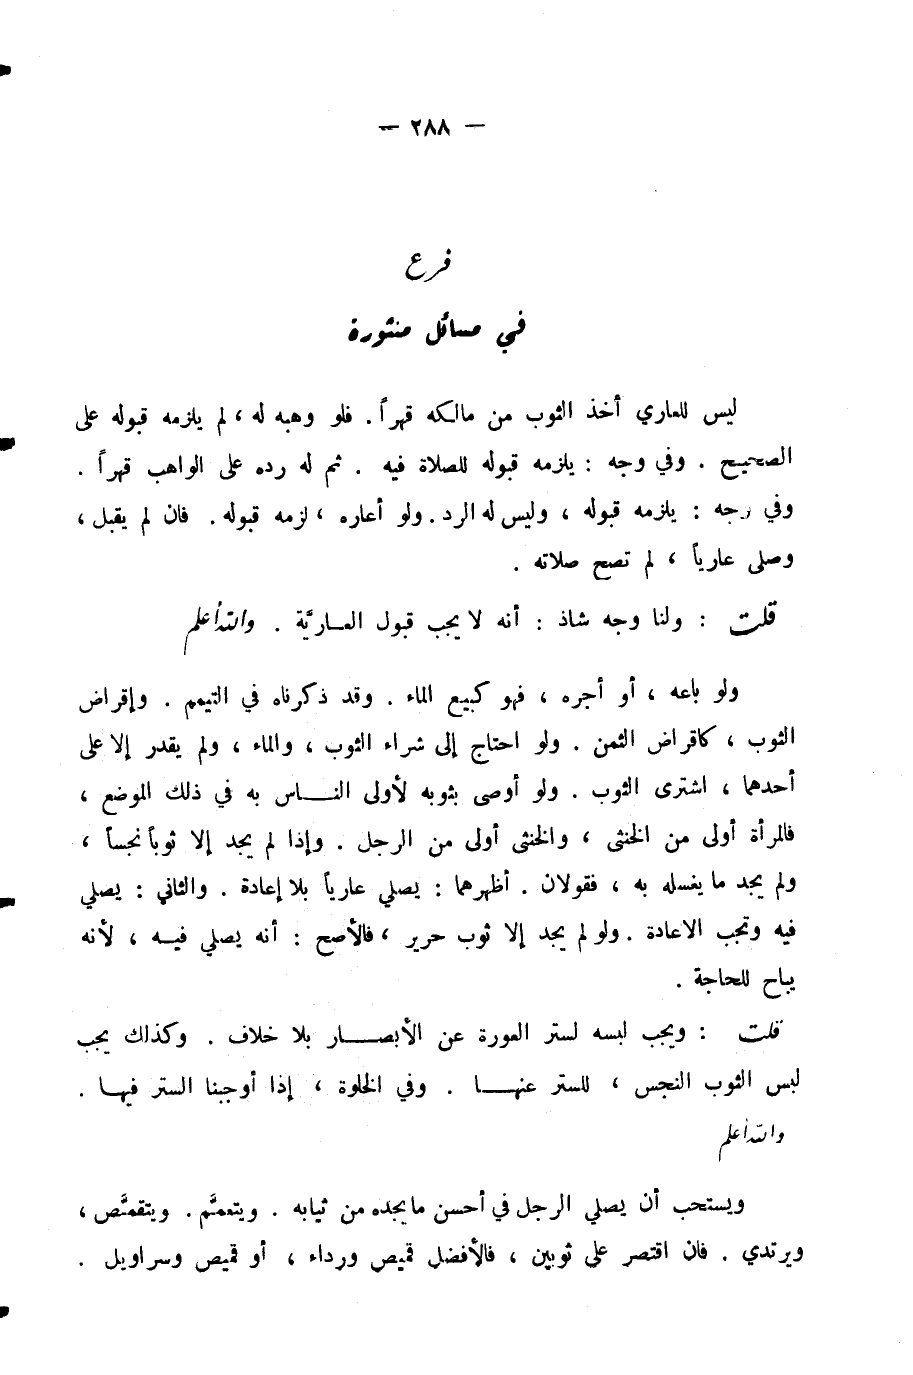 — ٢٨٨ —
فرع
في مسائل منثورة
ليس للعاري أخذ الثوب من مالكه قهراً . فلو وهبه له ، لم يلزمه قبوله على
الصحيح . وفي وجه : يلزمه قبوله للصلاة فيه . ثم له رده على الواهب قهراً .
وفي وجه : يلزمه قبوله ، وليس له الرد . ولو أعاره ، لزمه قبوله . فان لم يقبل ،
وصلى عارياً ، لم تصح صلاته .
قلت : ولنا وجه شاذ : أنه لا يجب قبول العـاريَّة . والله أعلم
ولو باعه ، أو أجره ، فهو كبيع الماء . وقد ذكرناه في التيمم . وإقراض
الثوب ، كاقراض الثمن . ولو احتاج إلى شراء الثوب ، والماء ، ولم يقدر إلا على
أحدهما ، اشترى الثوب . ولو أوصى بثوبه لأولى النـــاس به في ذلك الموضع ،
فالمرأة أولى من الخنثى ، والخنثى أولى من الرجل . وإذا لم يجد إلا ثوباً نجساً ،
ولم يجد ما يغسله به ، فقولان . أظهرهما : يصلي عارياً بلا إعادة . والثاني : يصلي
فيه وتجب الاعادة . ولو لم يجد إلا ثوب حرير ، فالأصح : أنه يصلي فيـه ، لأنه
يباح للحاجة .
قلت : ويجب لبسه لستر العورة عن الأبصـــار بلا خلاف . وكذلك يجب
لبس الثوب النجس ، للستر عنهـــا . وفي الخلوة ، إذا أوجبنا الستر فيهـا .
والله أعلم
ويستحب أن يصلي الرجل في أحسن ما يجده من ثيابه . ويتعمَّم . ويتقمَّص ،
ويرتدي . فان اقتصر على ثوبين ، فالأفضل قميص ورداء ، أو قميص وسراويل .